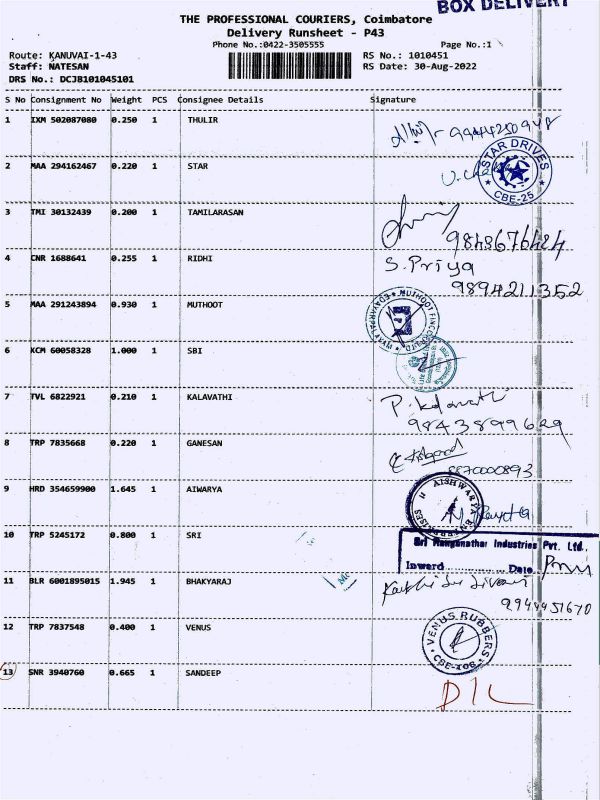 BOX DELIVERY
THE PROFESSIONAL COURIERS, Coimbatore
Delivery Runsheet - P43
Phone No.:0422-3505555 Page No.:1
Route: KANUVAI-1-43 RS No.: 1010451
Staff: NATESAN RS Date: 30-Aug-2022
DRS No.: DCJB101045101
S No Consignment No Weight PCS Consignee Details Signature
1 IXM 502087080 0.250 1 THULIR
2 MAA 294162467 0.220 1 STAR
STAR DRIVES
CBE-25
3 TMI 30132439 0.200 1 TAMILARASAN
9843676424
4 CNR 1688641 0.255 1 RIDHI S. Priya
9894211352
5 MAA 291243894 0.930 1 MUTHOOT
6 KCM 60058328 1.000 1 SBI
7 TVL 6822921 0.210 1 KALAVATHI P. Kalavathi
9843899629
8 TRP 7835668 0.220 1 GANESAN
8870000893
9 HRD 354659900 1.645 1 AIWARYA
AISHWARYA ENTERPRISES
10 TRP 5245172 0.800 1 SRI
Sri Ranganathar Industries Pvt. Ltd.,
Inward Date
11 BLR 6001895015 1.945 1 BHAKYARAJ
12 TRP 7837548 0.400 1 VENUS
VENUS RUBBERS
CBE-108
13 SNR 3940760 0.665 1 SANDEEP
D/L